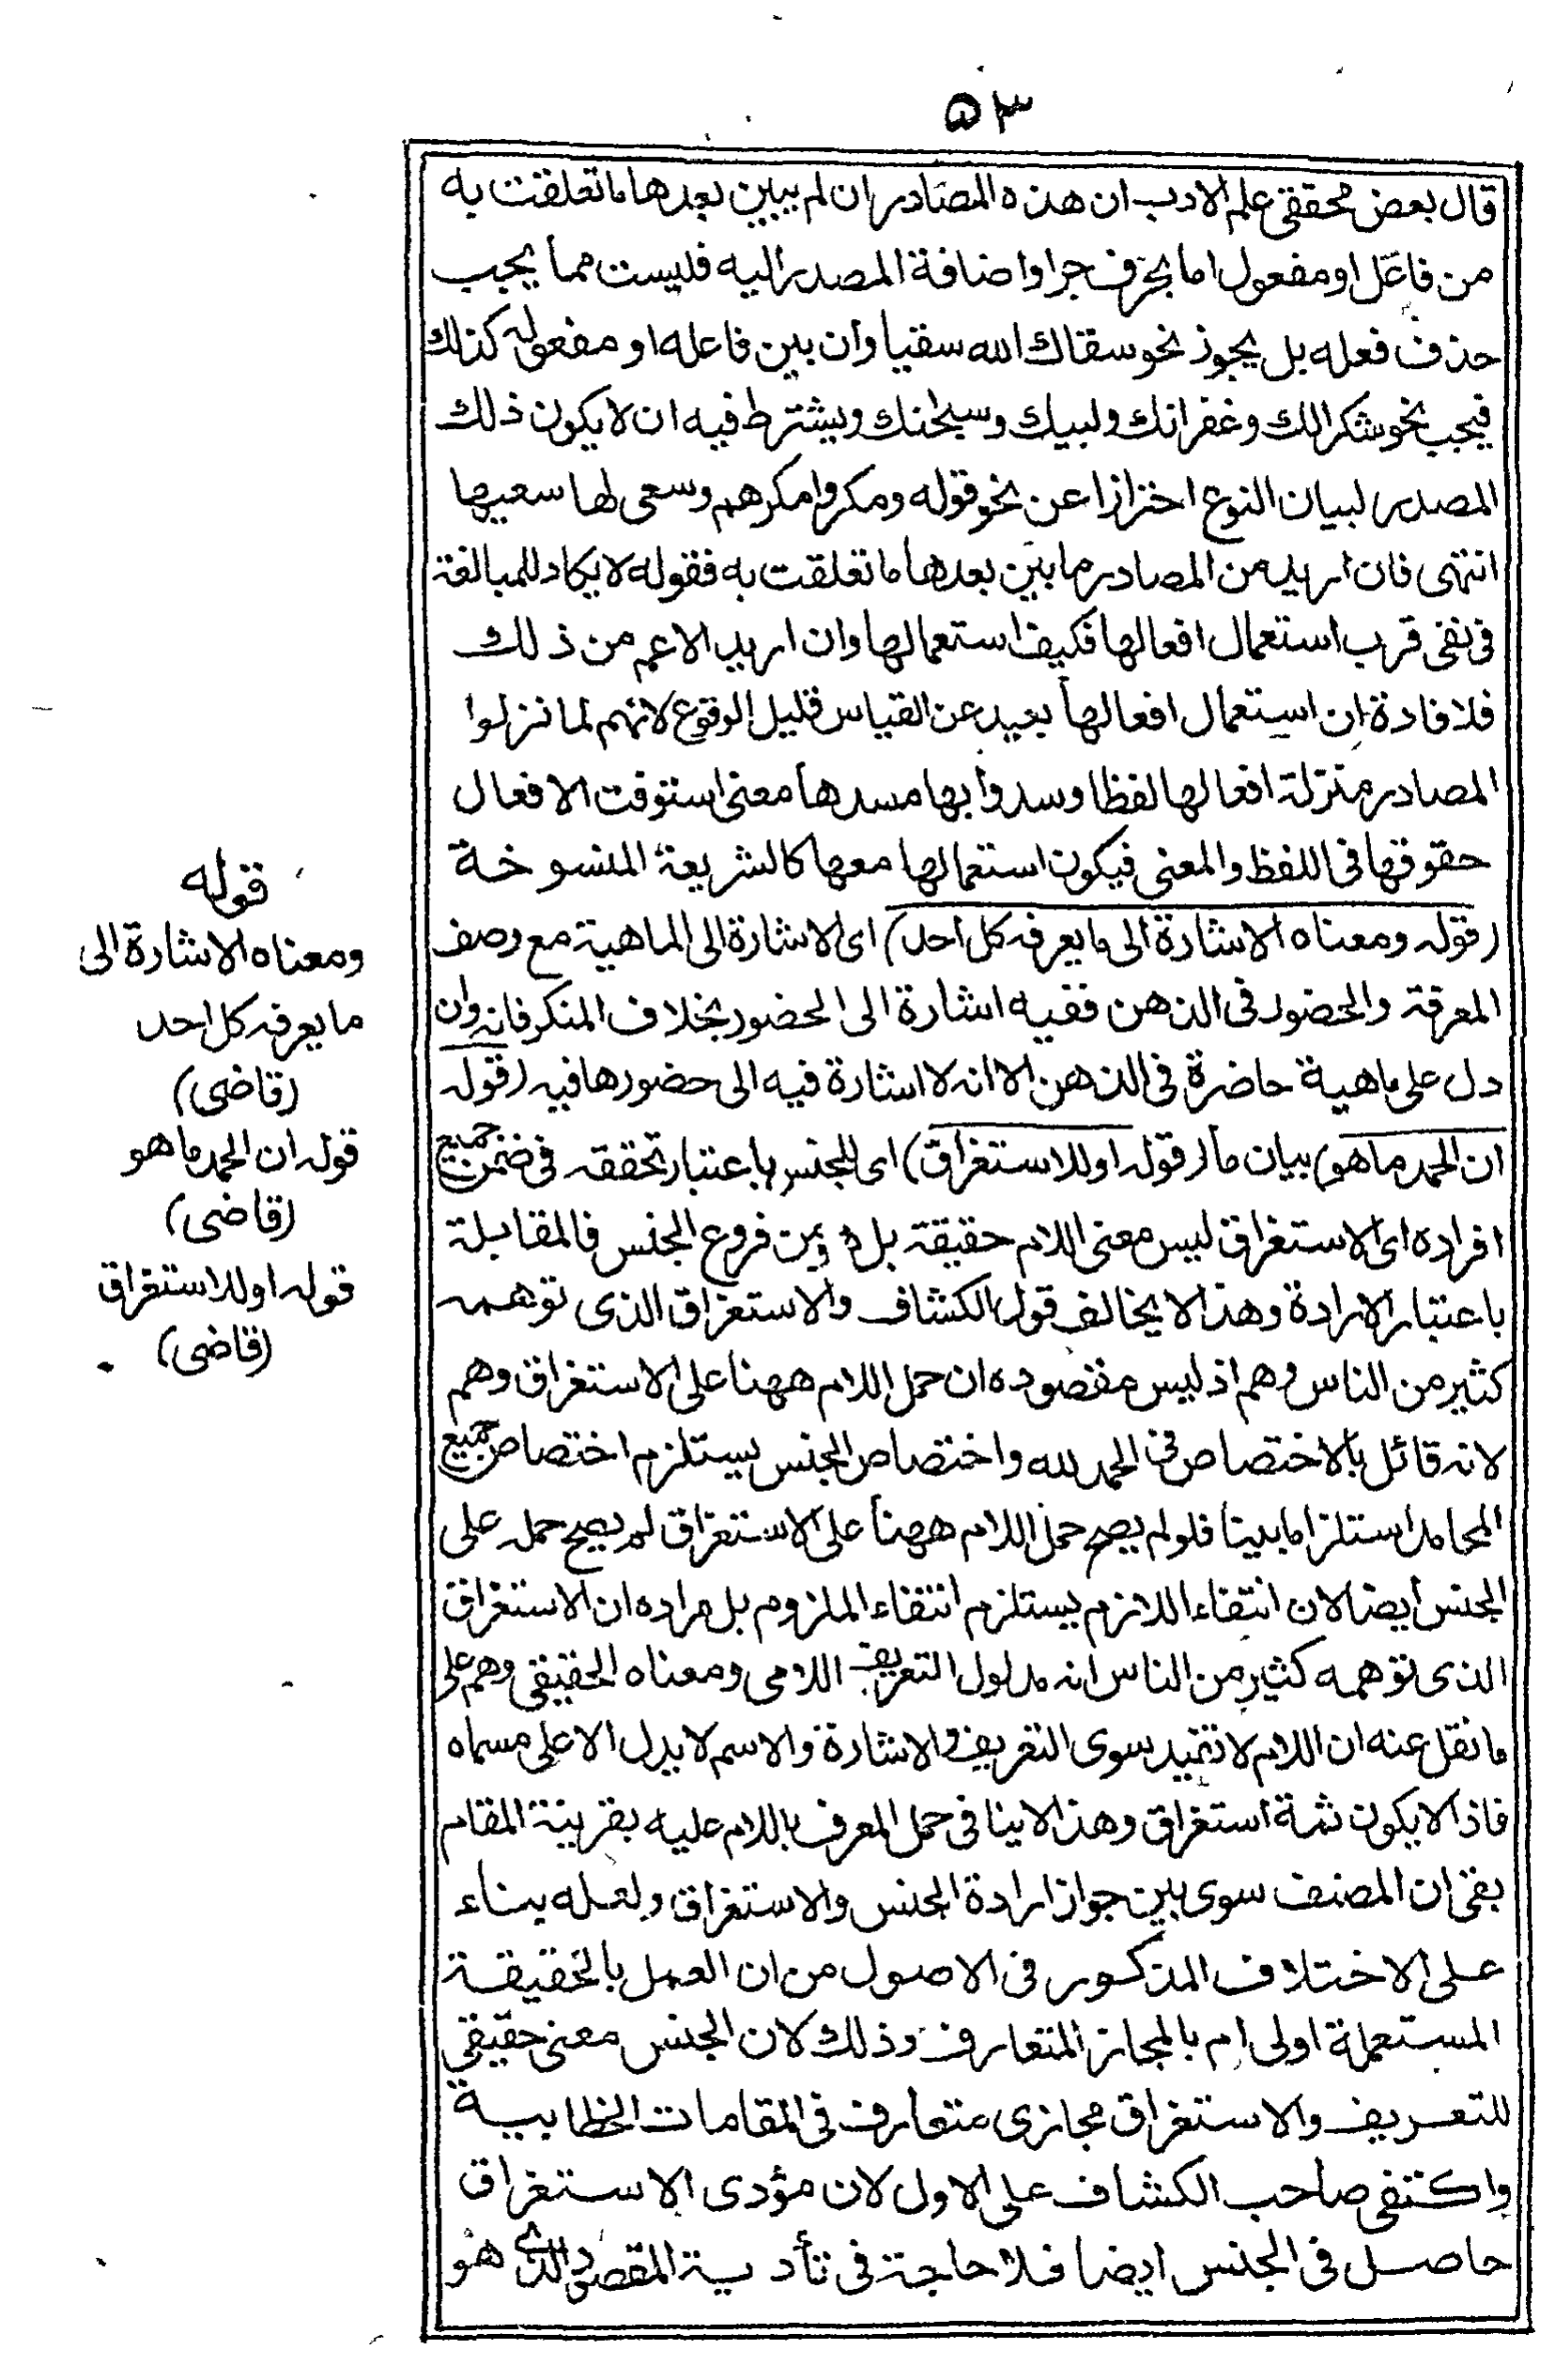 ٥٣
قال بعض محققى علم الادب ان هذه المصادر ان لم يبين بعدها ما تعلقت به
من فاعل او مفعول اما بحرف جر او اضافة المصدر اليه فليست مما يجب
حذف فعله بل يجوز نحو سقاك الله سقيا وان بين فاعله او مفعوله كذلك
فيجب نحو شكرا لك وغفرانك ولبيك وسبحنك ويشترط فيه ان لا يكون ذلك
المصدر لبيان النوع احترازا عن نحو قوله ومكروا مكرهم وسعى لها سعيها
انتهى فان اريد من المصادر ما بين بعدها ما تعلقت به فقوله لا يكاد للمبالغة
فى نفى قرب استعمال افعالها فكيف استعمالها وان اريد الاعم من ذلك
فلافادة ان استعمال افعالها بعيد عن القياس قليل الوقوع لانهم لما نزلوا
المصادر منزلة افعالها لفظا وسدوا بها مسدها معنى استوفت الافعال
حقوقها فى اللفظ والمعنى فيكون استعمالها معها كالشريعة المنسوخة
(قوله ومعناه الاشارة الى ما يعرفه كل احد) اى الاشارة الى الماهية مع وصف
المعرفة والحضور فى الذهن ففيه اشارة الى الحضور بخلاف المنكر فانه وان
دل على ماهية حاضرة فى الذهن الا انه لا اشارة فيه الى حضورها فيه (قوله
ان الحمد ما هو) بيان ما (قوله او للاستغراق) اى للجنس باعتبار تحققه فى ضمن جميع
افراده اى الاستغراق ليس معنى اللام حقيقة بل هو من فروع الجنس فالمقابلة
باعتبار الارادة وهذا لا يخالف قول الكشاف والاستغراق الذى توهمه
كثير من الناس وهم اذ ليس مقصوده ان حمل اللام ههنا على الاستغراق وهم
لانه قائل بالاختصاص فى الحمد لله واختصاص الجنس يستلزم اختصاص جميع
المحامد استلزاما بينا فلو لم يصح حمل اللام ههنا على الاستغراق لم يصح حمله على
الجنس ايضا لان انتفاء اللازم يستلزم انتفاء الملزوم بل مراده ان الاستغراق
الذى توهمه كثير من الناس انه مدلول التعريف اللامى ومعناه الحقيقى وهم على
ما نقل عنه ان اللام لا تفيد سوى التعريف والاشارة والاسم لا يدل الا على مسماه
فاذا لا يكون ثمة استغراق وهذا لا ينافى حمل المعرف باللام عليه بقرينة المقام
بقى ان المصنف سوى بين جواز ارادة الجنس والاستغراق ولعله بناء
على الاختلاف المذكور فى الاصول من ان العمل بالحقيقة
المستعملة اولى ام بالمجاز المتعارف وذلك لان الجنس معنى حقيقى
للتعريف والاستغراق مجازى متعارف فى المقامات الخطابية
واكتفى صاحب الكشاف على الاول لان مؤدى الاستغراق
حاصل فى الجنس ايضا فلا حاجة فى تأدية المقصود الذى هو
قوله
ومعناه الاشارة الى
ما يعرفه كل احد
(قاضى)
قوله ان الحمد ما هو
(قاضى)
قوله او للاستغراق
(قاضى)